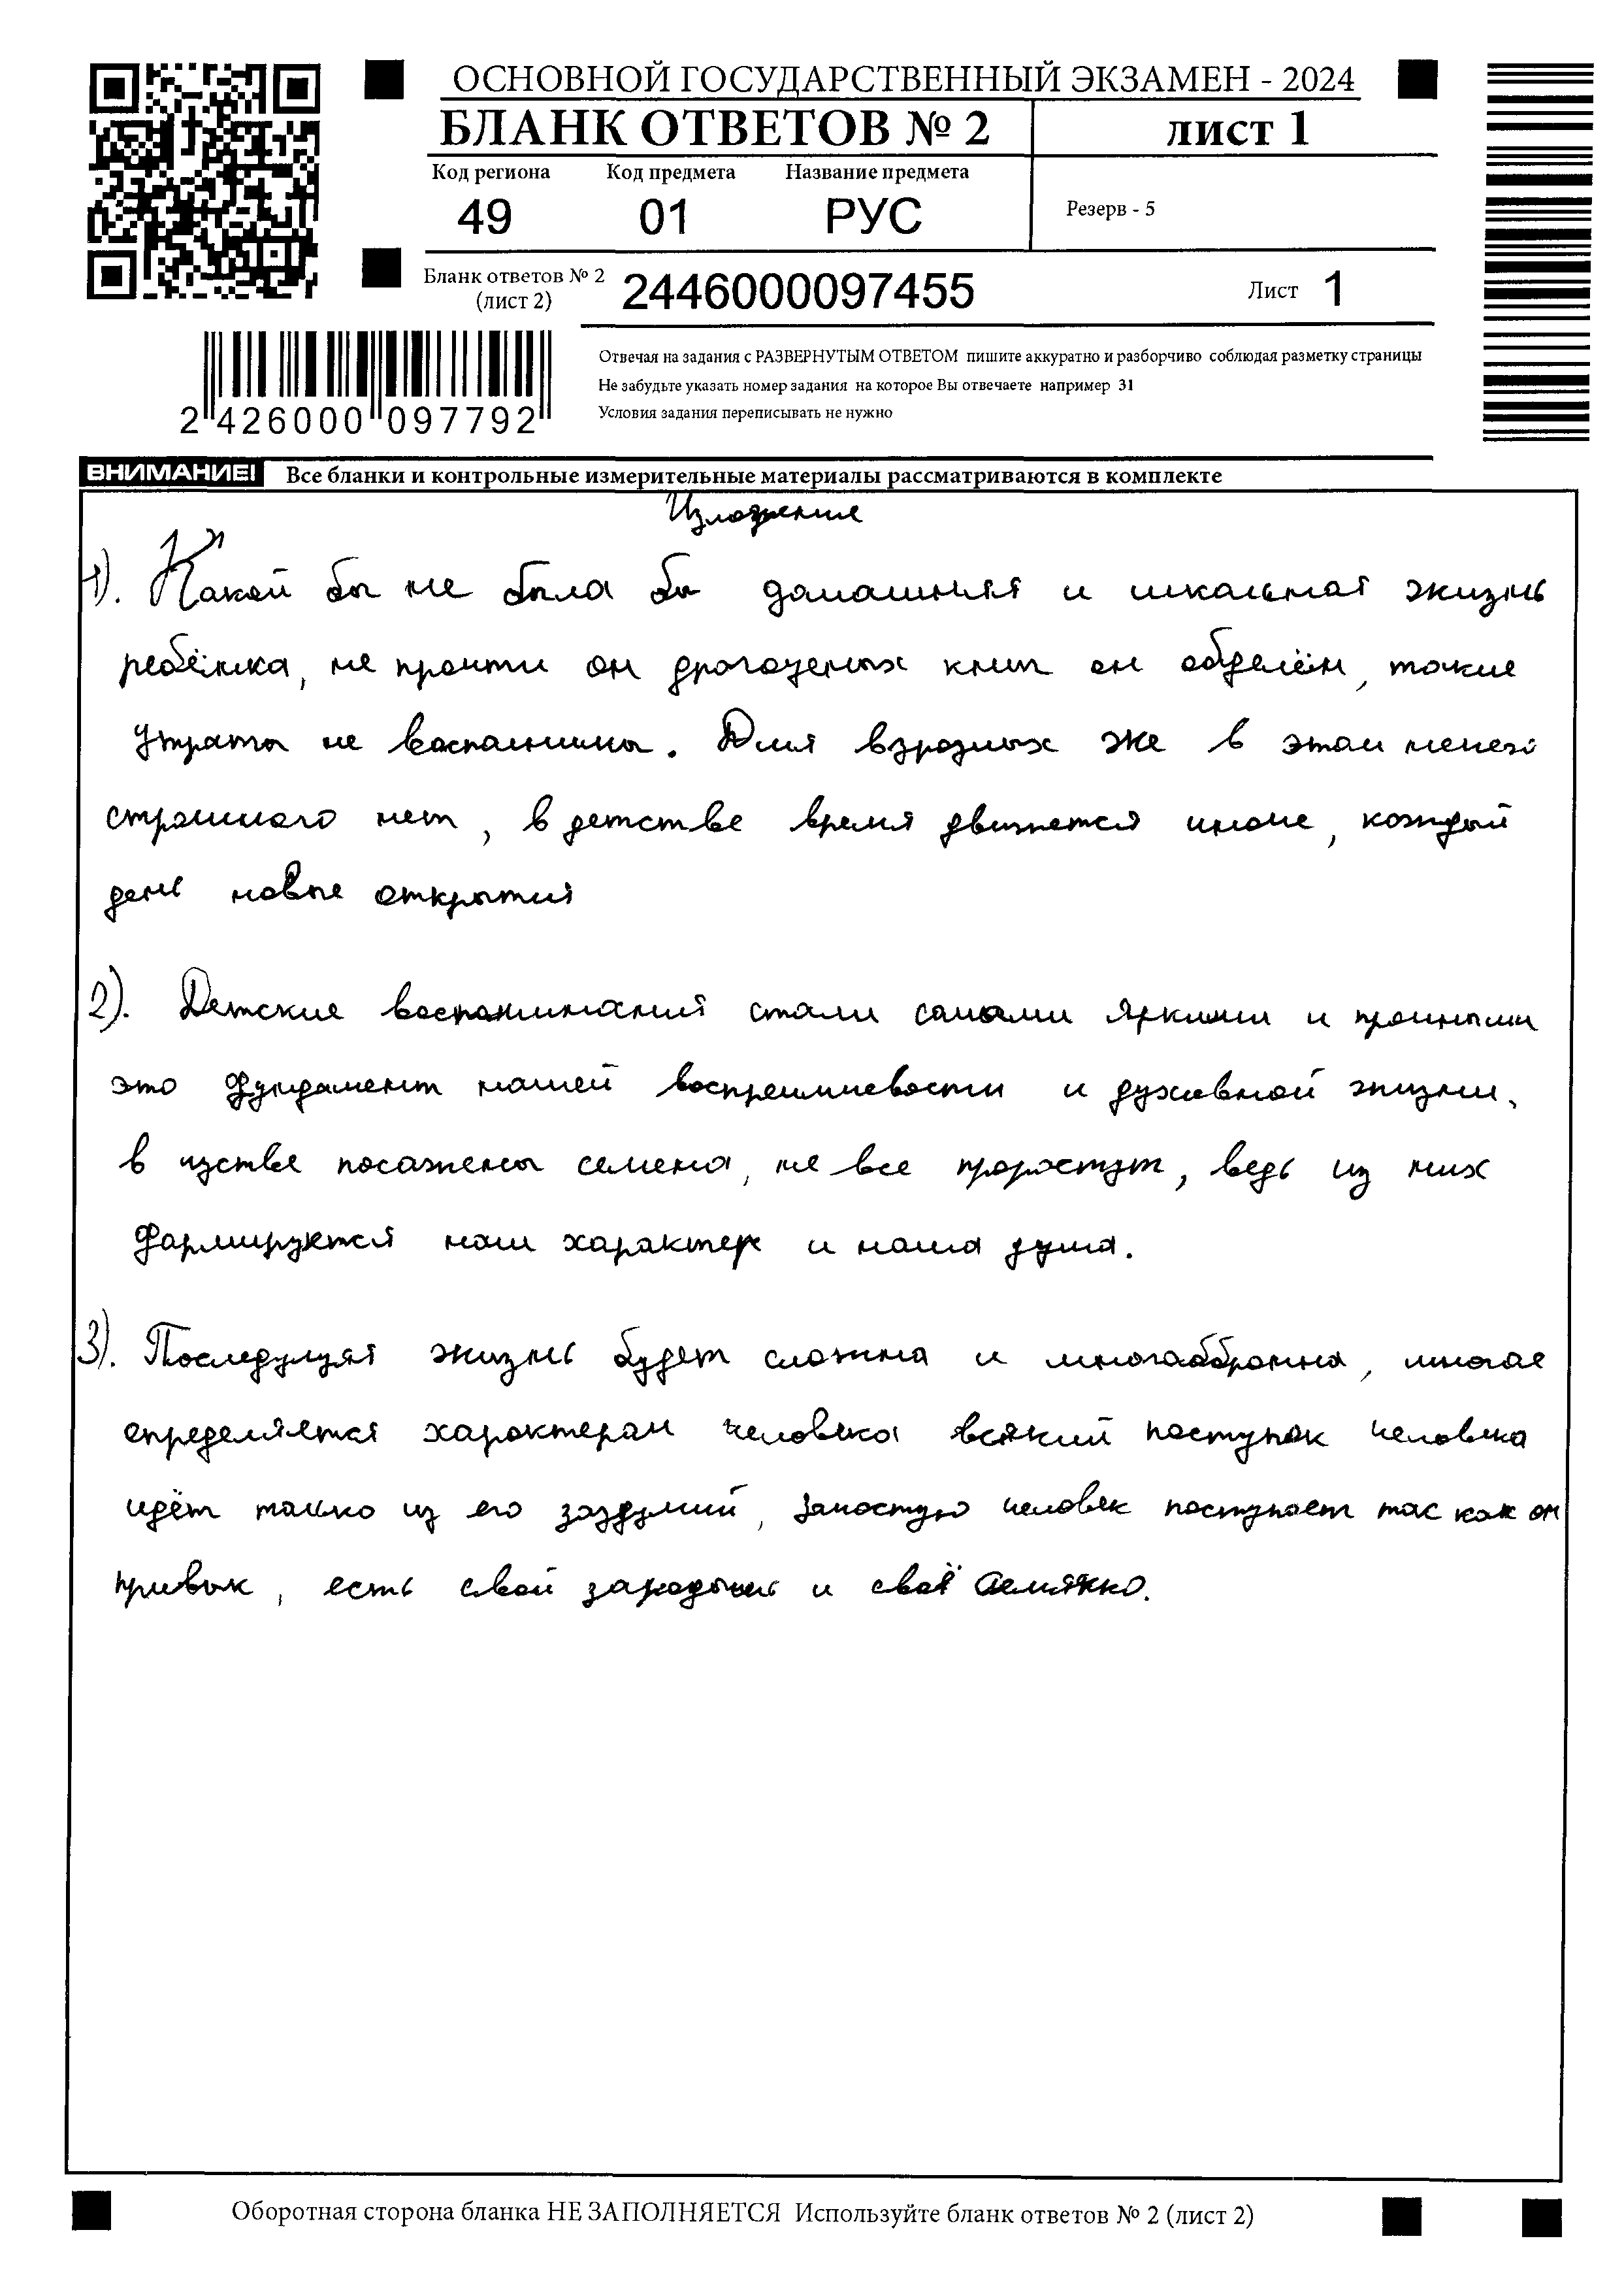 ОСНОВНОЙ ГОСУДАРСТВЕННЫЙ ЭКЗАМЕН - 2024
БЛАНК ОТВЕТОВ № 2
лист 1
Код региона Код предмета Название предмета
49 01 РУС
Резерв - 5
Бланк ответов № 2 (лист 2) 2446000097455
Лист 1
2 426000 097792
Отвечая на задания с РАЗВЕРНУТЫМ ОТВЕТОМ пишите аккуратно и разборчиво соблюдая разметку страницы
Не забудьте указать номер задания на которое Вы отвечаете например 31
Условия задания переписывать не нужно
ВНИМАНИЕ! Все бланки и контрольные измерительные материалы рассматриваются в комплекте
Изложение
1). Какой бы не была бы домашняя и школьная жизнь
ребёнка, не прочти он драгоценых книг он обделён, такие
утраты не воспалнимы. Для взрозлых же в этом
страшного нет, в детстве время движется иначе, каждый
день новые открытия
2). Детские воспоминания стали самыми яркими и прочными
это фундамент нашей и духовной жизни.
в посажены семена, не все прорастут, ведь из них
фармируются наш характер и наша душа.
3). жизнь будет сложна и многообразна, многое
определяется характером человека всякий поступок человека
идёт только из его раздумий, человек поступает так как он
привык, есть свой и своё
Оборотная сторона бланка НЕ ЗАПОЛНЯЕТСЯ Используйте бланк ответов № 2 (лист 2)